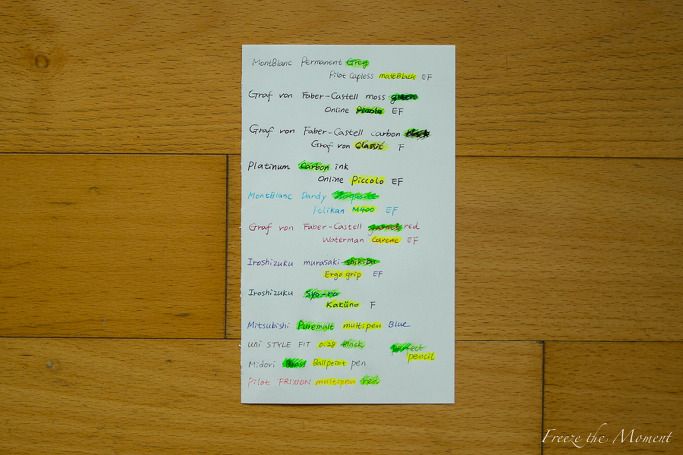 MontBlanc Permanent Grey
Pilot Capless matt Black EF
Graf von Faber-Castell moss green
Online Piccolo EF
Graf von Faber-Castell carbon black
Graf von Classic F
Platinum Carbon ink
Online Piccolo EF
MontBlanc Dandy
Pelikan M400 EF
Graf von Faber-Castell garnet red
Waterman Carene EF
Iroshizuku murasaki-shikibu
Ergo grip EF
Iroshizuku Syo-ro
Kaküno F
Mitsubishi Puremalt multipen Blue
uni STYLE FIT 0.28 black
perfect pencil
Midori Brass Ballpoint pen
Pilot FRIXION multipen red
Freeze the Moment